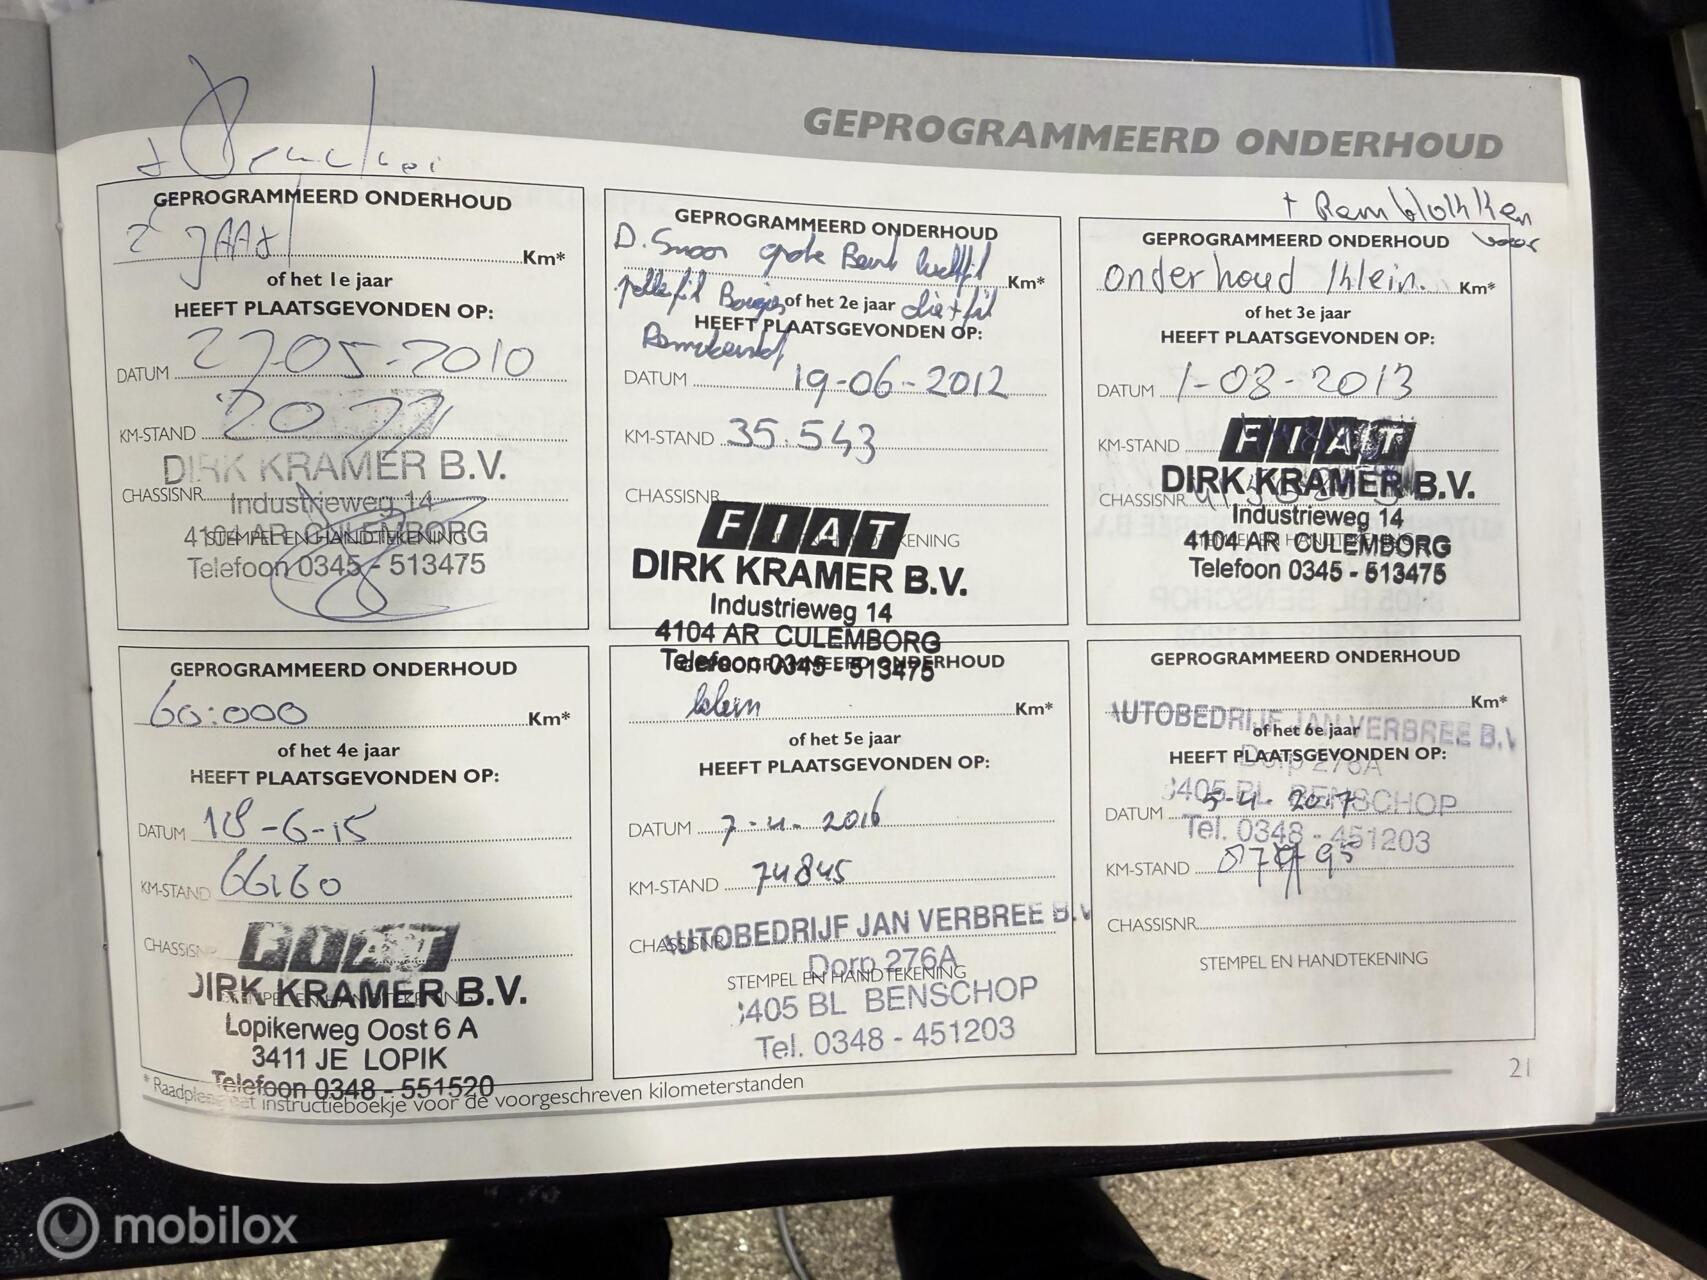 GEPROGRAMMEERD ONDERHOUD
GEPROGRAMMEERD ONDERHOUD
2e JAAR
Km*
of het 1e jaar
HEEFT PLAATSGEVONDEN OP:
DATUM 27-05-2010
KM-STAND
DIRK KRAMER B.V.
CHASSISNR.
Industrieweg 14
4104 AR CULEMBORG
STEMPEL EN HANDTEKENING
Telefoon 0345 - 513475
GEPROGRAMMEERD ONDERHOUD
grote Beurt
Km*
of het 2e jaar
HEEFT PLAATSGEVONDEN OP:
DATUM 19-06-2012
KM-STAND 35.543
CHASSISNR.
FIAT
STEMPEL EN HANDTEKENING
DIRK KRAMER B.V.
Industrieweg 14
4104 AR CULEMBORG
Telefoon 0345 - 513475
+ Remblokken
voor
GEPROGRAMMEERD ONDERHOUD
onderhoud klein. Km*
of het 3e jaar
HEEFT PLAATSGEVONDEN OP:
DATUM 1-08-2013
KM-STAND
FIAT
DIRK KRAMER B.V.
CHASSISNR.
Industrieweg 14
4104 AR CULEMBORG
STEMPEL EN HANDTEKENING
Telefoon 0345 - 513475
GEPROGRAMMEERD ONDERHOUD
60.000 Km*
of het 4e jaar
HEEFT PLAATSGEVONDEN OP:
DATUM 18-6-15
KM-STAND 66160
CHASSISNR.
FIAT
DIRK KRAMER B.V.
STEMPEL EN HANDTEKENING
Lopikerweg Oost 6 A
3411 JE LOPIK
Telefoon 0348 - 551520
GEPROGRAMMEERD ONDERHOUD
klein Km*
of het 5e jaar
HEEFT PLAATSGEVONDEN OP:
DATUM 7-4-2016
KM-STAND 74845
CHASSISNR.
AUTOBEDRIJF JAN VERBREE B.V.
Dorp 276A
STEMPEL EN HANDTEKENING
3405 BL BENSCHOP
Tel. 0348 - 451203
GEPROGRAMMEERD ONDERHOUD
Km*
AUTOBEDRIJF JAN VERBREE B.V.
of het 6e jaar
HEEFT PLAATSGEVONDEN OP:
Dorp 276A
3405 BL BENSCHOP
DATUM 5-4-2017
Tel. 0348 - 451203
KM-STAND
CHASSISNR.
STEMPEL EN HANDTEKENING
* Raadpleeg het instructieboekje voor de voorgeschreven kilometerstanden
21
mobilox